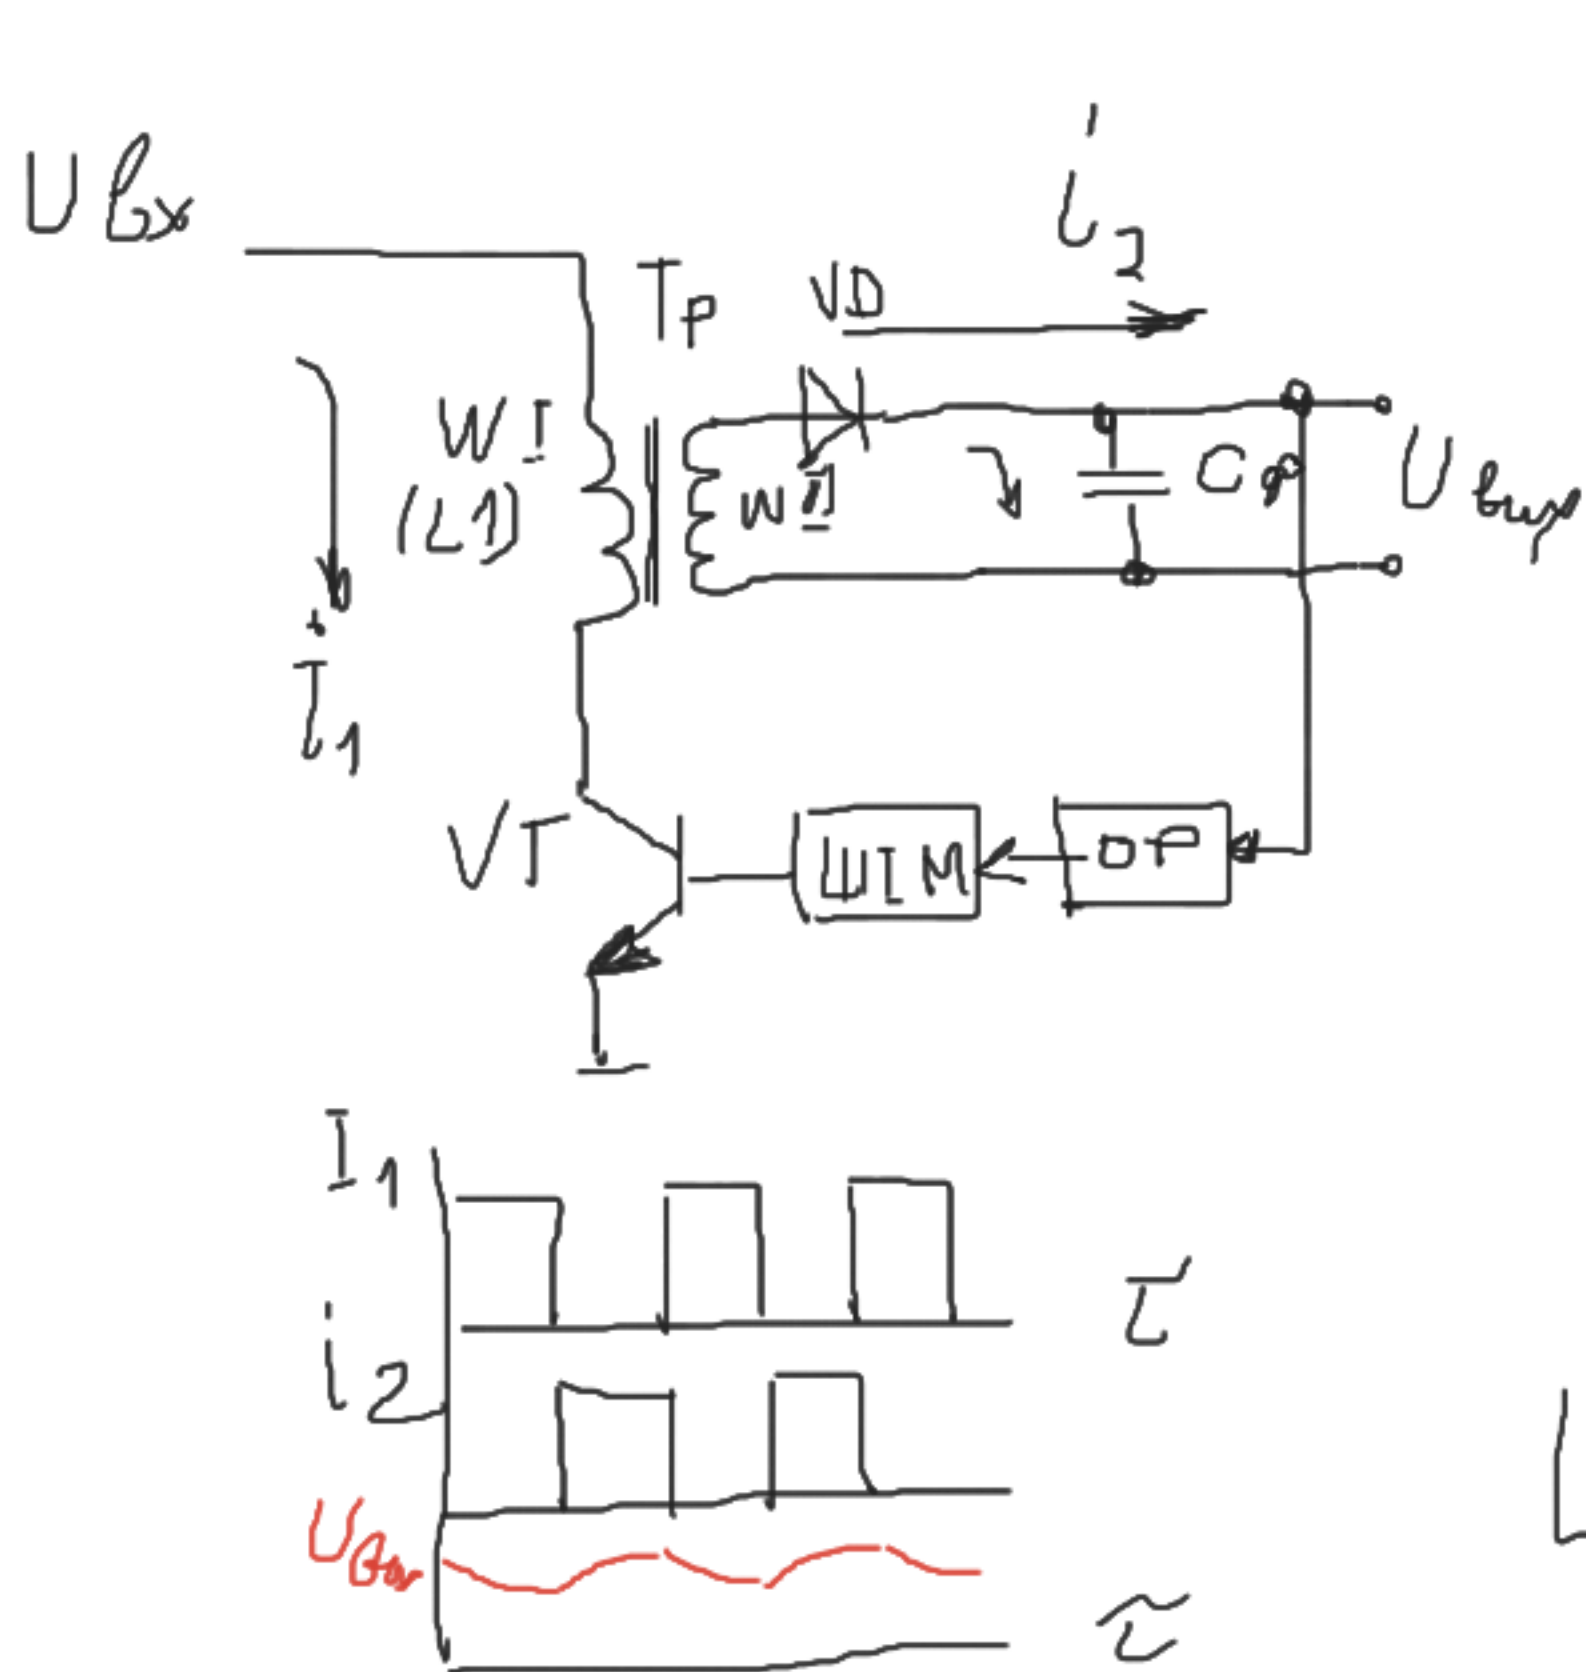 Uвх
i2
Tp
VD
WI
(L1)
WII
Cф
Uвих
i1
VT
ШІМ
ОР
I1
τ
i2
Uвих
τ